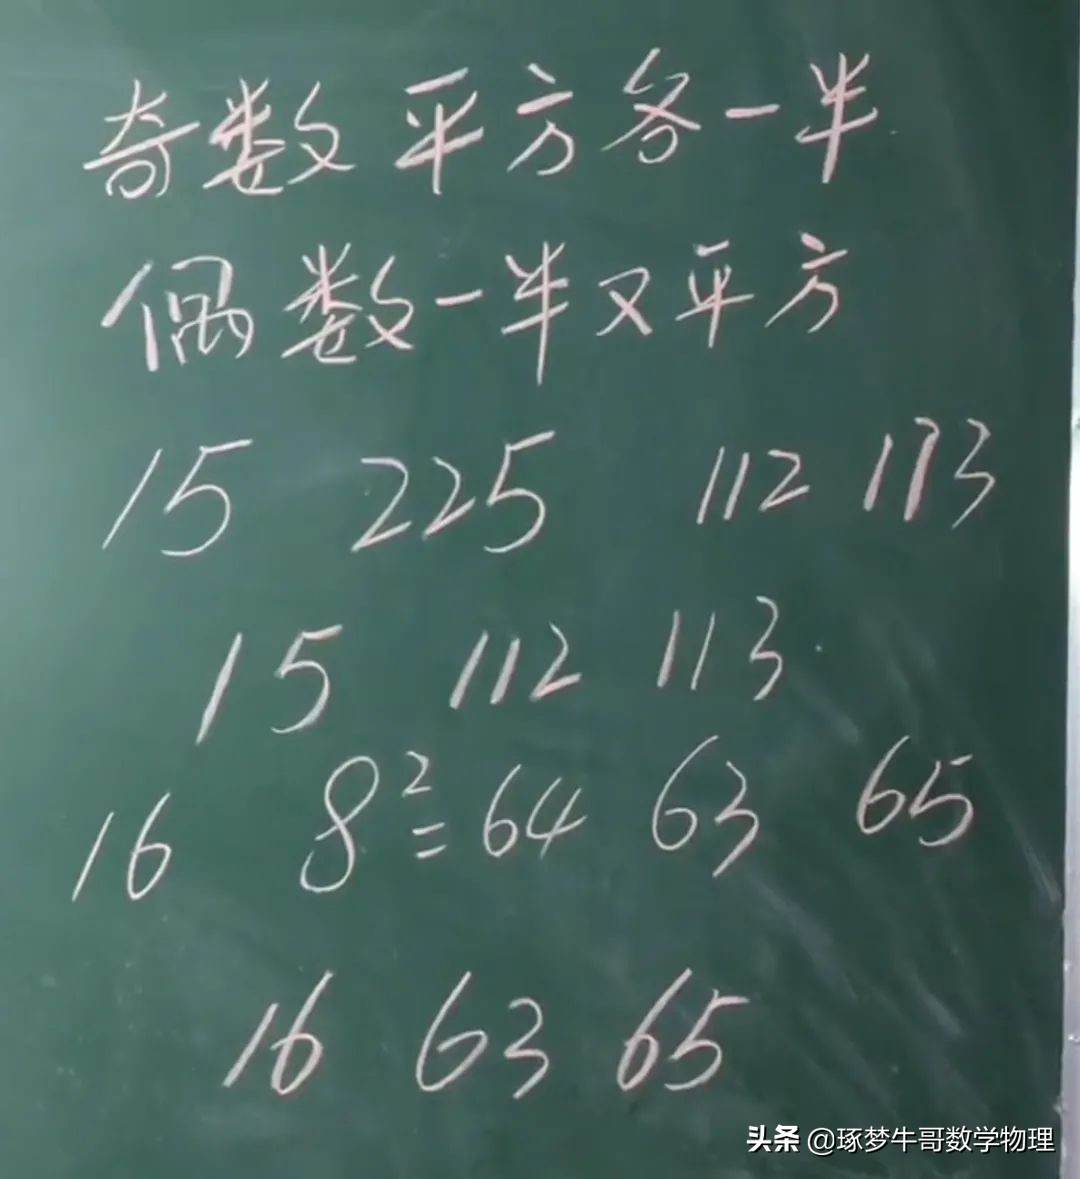 奇数平方各一半
偶数一半又平方
15 225 112 113
15 112 113
16 8²=64 63 65
16 63 65
头条 @琢梦牛哥数学物理